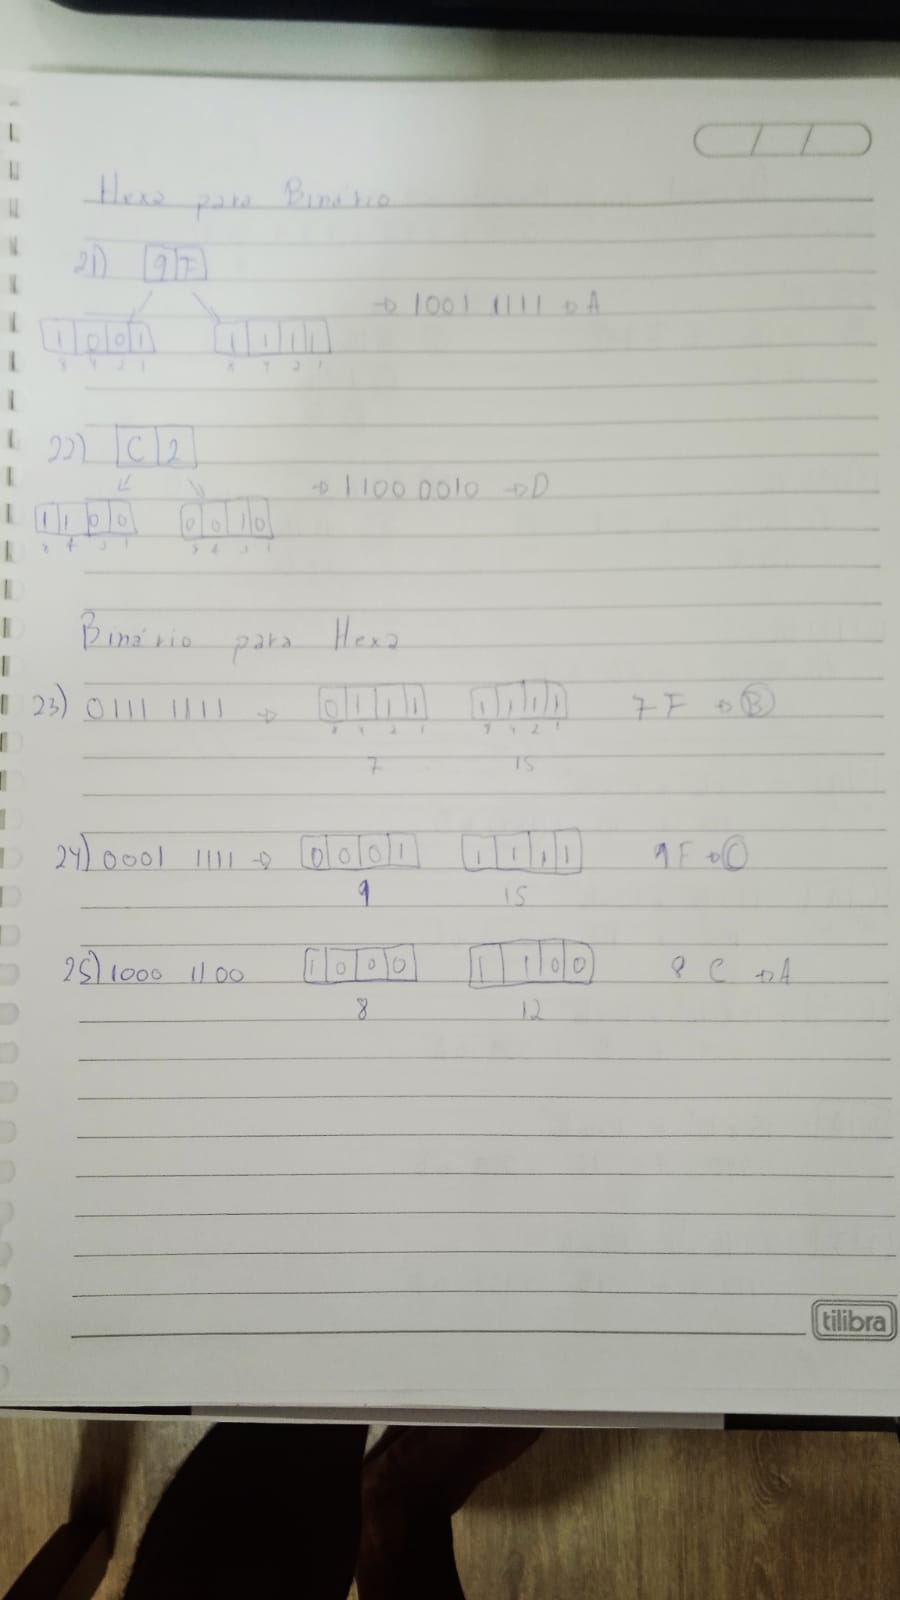 Hexa para Binário
21) 9F
→ 1001 1111 → A
1 0 0 1 1 1 1 1
8 4 2 1 8 4 2 1
22) C 2
→ 1100 0010 → D
1 1 0 0 0 0 1 0
8 4 2 1 8 4 2 1
Binário para Hexa
23) 0111 1111 → 0 1 1 1 1 1 1 1 7F → B
8 4 2 1 8 4 2 1
7 15
24) 0001 1111 → 0 0 0 1 1 1 1 1 9F → C
9 15
25) 1000 1100 1 0 0 0 1 1 0 0 8 C → A
8 12
tilibra